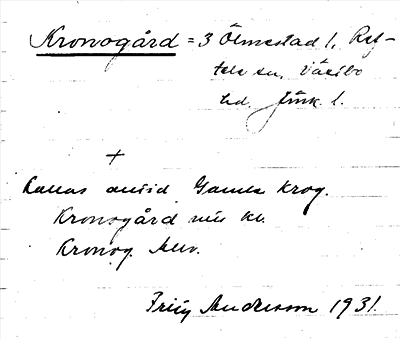 Kronogård = 3 Ölmestad l, Ref-
tele sn, Västbo
hd. Jönk. l.
+
Kallas ansid Gamla Krog.
Kronogård
Kronog.
Andersson 1931.